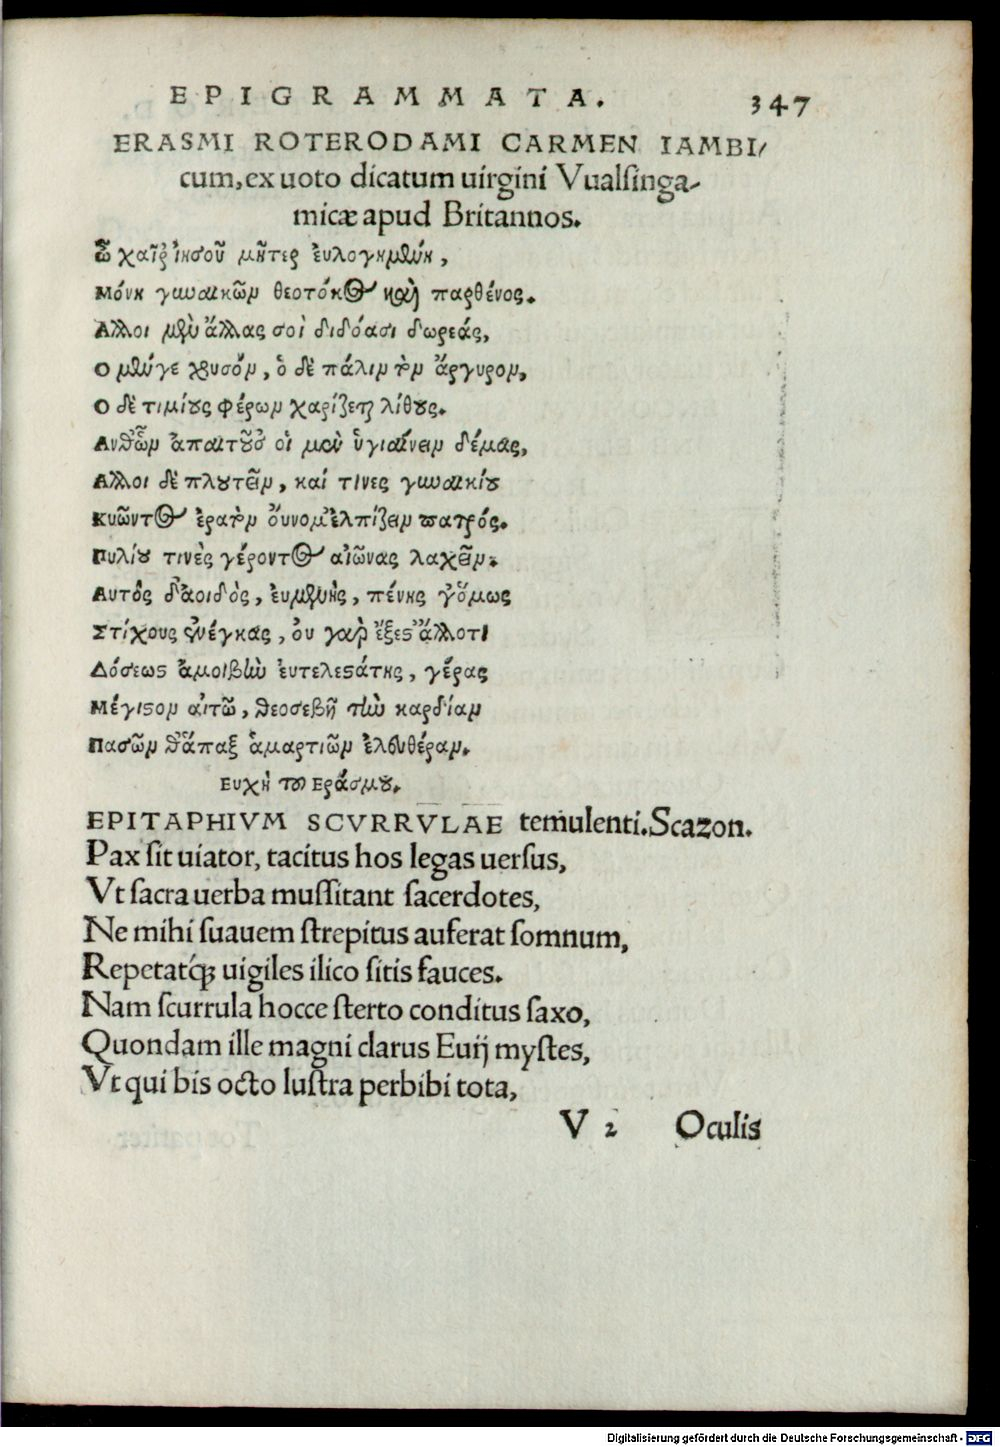 EPIGRAMMATA. 347
ERASMI ROTERODAMI CARMEN IAMBI/
cum, ex uoto dicatum uirgini Vualſinga-
micæ apud Britannos.
Ὦ χαῖρ ἰησοῦ μῆτερ ἐυλογημένη,
Μόνη γυναικῶν θεοτόκος καὶ παρθένος.
Αλλοι μὲν ἄλλας σοὶ διδόασι δωρεάς,
Ο μένγε χρυσόν, ὁ δὲ πάλιν τὸν ἄργυρον,
Ο δὲ τιμίους φέρων χαρίζεται λίθους.
Ανθ ὧν ἀπαιτοῦσ οἱ μὲν ὑγιαίνειν δέμας,
Αλλοι δὲ πλουτεῖν, καί τινες γυναικίου
Κυῶντος ἐρατὸν ὄυνομ ἐλπίζειν πατρός.
Πυλίου τινὲς γέροντος αἰῶνας λαχεῖν.
Αυτὸς δ ἀοιδὸς, ἐυμενὴς, πένης γ ὅμως
Στίχους ἐνέγκας, ὀυ γαρ ἔξεστ ἄλλοτι
Δόσεως ἀμοιβὴν ἐυτελεστάτης, γέρας
Μέγιστον αἰτῶ, θεοσεβῆ τὴν καρδίαν
Πασῶν θ ἅπαξ ἁμαρτιῶν ἐλευθέραν.
Ευχὴ του Εράσμου.
EPITAPHIVM SCVRRVLAE temulenti. Scazon.
Pax ſit uiator, tacitus hos legas uerſus,
Vt ſacra uerba muſſitant ſacerdotes,
Ne mihi ſuauem ſtrepitus auferat ſomnum,
Repetatq́ꝫ uigiles ilico ſitis fauces.
Nam ſcurrula hocce ſterto conditus ſaxo,
Quondam ille magni clarus Euij myſtes,
Vt qui bis octo luſtra perbibi tota,
V 2 Oculis
Digitalisierung gefördert durch die Deutsche Forschungsgemeinschaft - DFG